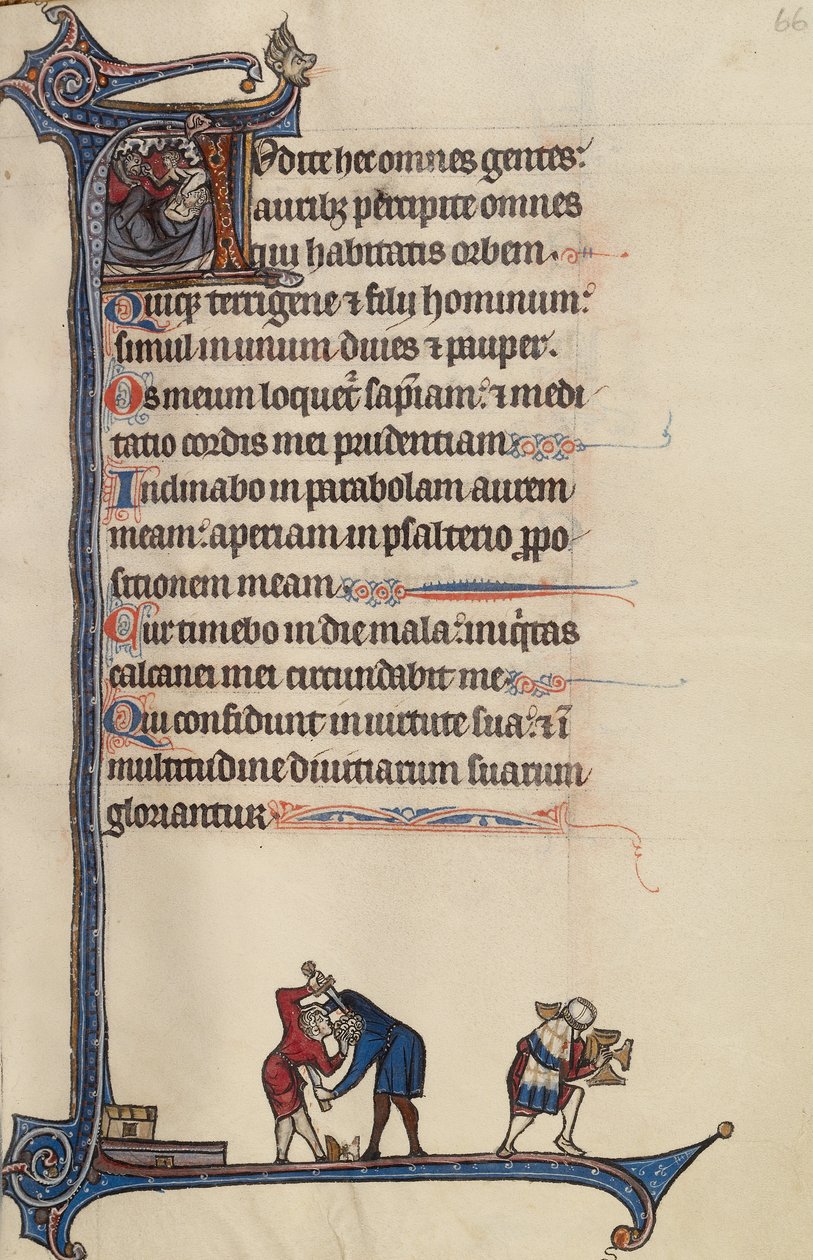 66
AVdite hec omnes gentes:
auribꝫ percipite omnes
qui habitatis orbem.
Quiqꝫ terrigene ⁊ filij hominum:
simul in unum diues ⁊ pauper.
Os meum loquet᷑ sap̄iam: ⁊ medi
tatio cordis mei prudentiam
Inclinabo in parabolam aurem
meam: aperiam in psalterio ꝓpo
sitionem meam
Cur timebo in die mala: iniqͥtas
calcanei mei circundabit me
Qui confidunt in uirtute sua: ⁊ ī
multitudine diuitiarum suarum
gloriantur